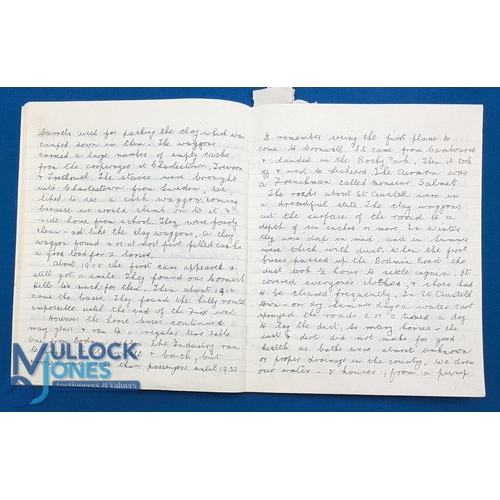 barrels used for packing the clay which was
camped down in them. The waggons
carried a large number of empty casks
from the cooperages at Charlestown, Trewoon
& Trethowel. The staves were brought
into Charlestown from Sweden, we
liked to see a cask waggon coming
because we would climb on to it &
ride home from school. They were fairly
clean - not like the clay waggons, A clay
waggon found 4 or at most five filled casks
a good load for 2 horses.
About 1908 the first cars appeared &
still got a smile. They found our Cornish
Hills too much for them. Then about 1912
came the buses. They found the hilly route
impossible until the end of the First war.
However the horse buses continued
may years & ran to a regular time table
the Industry ran
& back, but
passengers until 1930
I remember seeing the first plane to
come to Cornwall. It came from Cambourne
& landed in the Rocky Park. Then it took
off & went to Liskeard. The Airman was
a Frenchman called Monsieur Salmet
The roads about St Austell were in
a dreadful state. The clay waggons
cut the surface of the road to a
depth of six inches or more, in winter
they were deep in mud, and in summer
were thick with dust. When the first
buses passed up the Bodmin Road the
dust took ½ hour to settle again. It
covered everyones clothes, & shoes had
to be cleaned frequently. In St Austell
town - on dry summer days a water cart
sprayed the roads 2 or 3 times a day
to lay the dust, so many horses - the
dust & dirt did not make for good
health as baths were almost unknown
or proper drainage in the country, we drew
our water - 8 houses, from a pump
MULLOCK
JONES
Auctioneers & Valuers